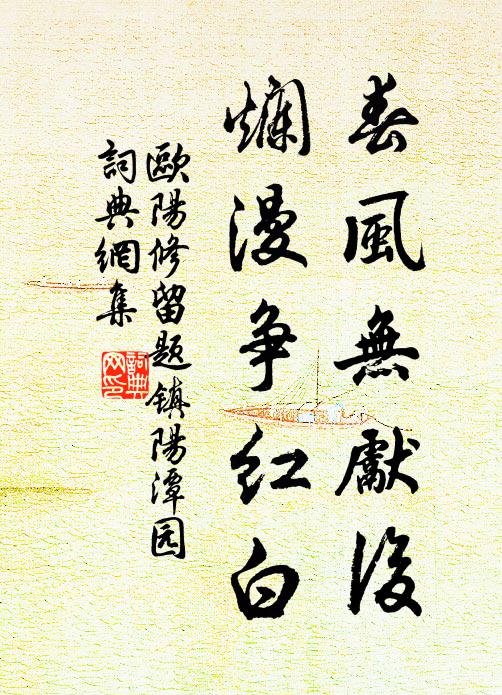 春風無獻後
爛漫争紅白
歐陽修留題鎮陽潭园
詞典網集
詞典网印